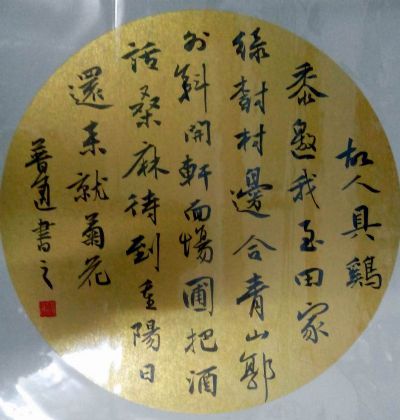 故人具鷄
黍邀我至田家
綠樹村邊合青山郭
外斜開軒面場圃把酒
話桑麻待到重陽日
還来就菊花
普通書之